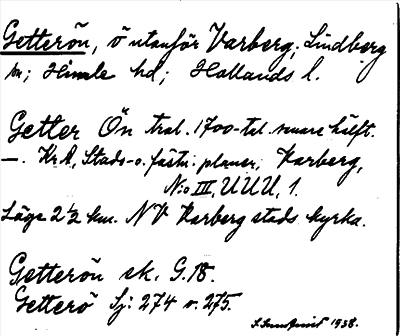 Getterön, ö utanför Varberg; Lindberg
sn; Himle hd; Hallands l.
Getter Ön trol. 1700-tal. senare hälft.
—. Kr A, Stads- o. fästn. planer, Varberg,
N:o III, UUU, 1.
Läge 2½ km. NV Varberg stads kyrka.
Getterön ek. G.18.
Getterö Sj: 274 o. 275.
1938.